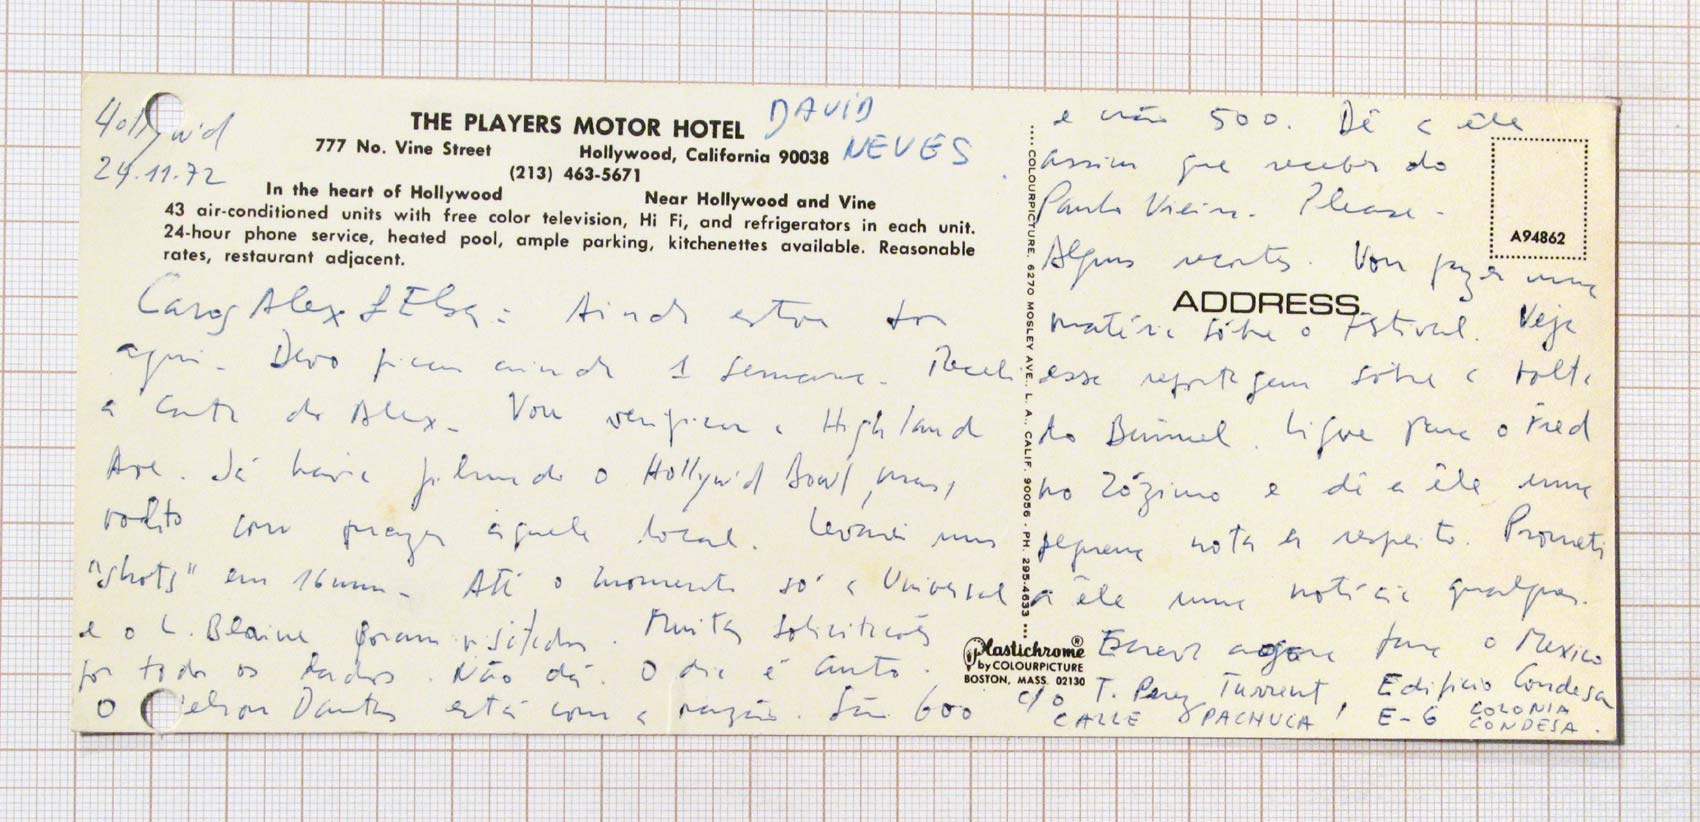 Hollyw'd
24.11.72
THE PLAYERS MOTOR HOTEL
777 No. Vine Street Hollywood, California 90038
(213) 463-5671
In the heart of Hollywood Near Hollywood and Vine
43 air-conditioned units with free color television, Hi Fi, and refrigerators in each unit.
24-hour phone service, heated pool, ample parking, kitchenettes available. Reasonable
rates, restaurant adjacent.
DAVID
NEVES
Caros Alex & Elsa: Ainda estou por
aqui. Devo ficar ainda 1 semana. Recebi
a carta do Alex. Vou verificar a Highland
Ave. Já havia filmado o Hollyw'd Bowl, mas,
volto com prazer àquele local. Levarei uns
"shots" em 16mm. Até o momento só a Universal
e o L. Blaine foram visitados. Muitas solicitações
por todos os lados. Não dá. O dia é curto.
O Nelson Dantas está com a razão. São 600
COLOURPICTURE, 6270 MOSLEY AVE., L. A., CALIF. 90056 · PH. 295-4633
Plastichrome®
by COLOURPICTURE
BOSTON, MASS. 02130
e não 500. Dê a êle
assim que receber do
Paulo Vieira. Please.
Alguns recortes. Vou fazer uma
matéria sôbre o Festival. Veja
essa reportagem sôbre a volta
do Buñuel. Ligue para o Fred
no Zózimo e dê a êle uma
pequena nota a respeito. Prometi
a êle uma notícia qualquer.
Escreva agora para o Mexico
c/o T. Perez Turrent, Edificio Condesa
CALLE PACHUCA, E-6 COLONIA
CONDESA.
A94862
ADDRESS